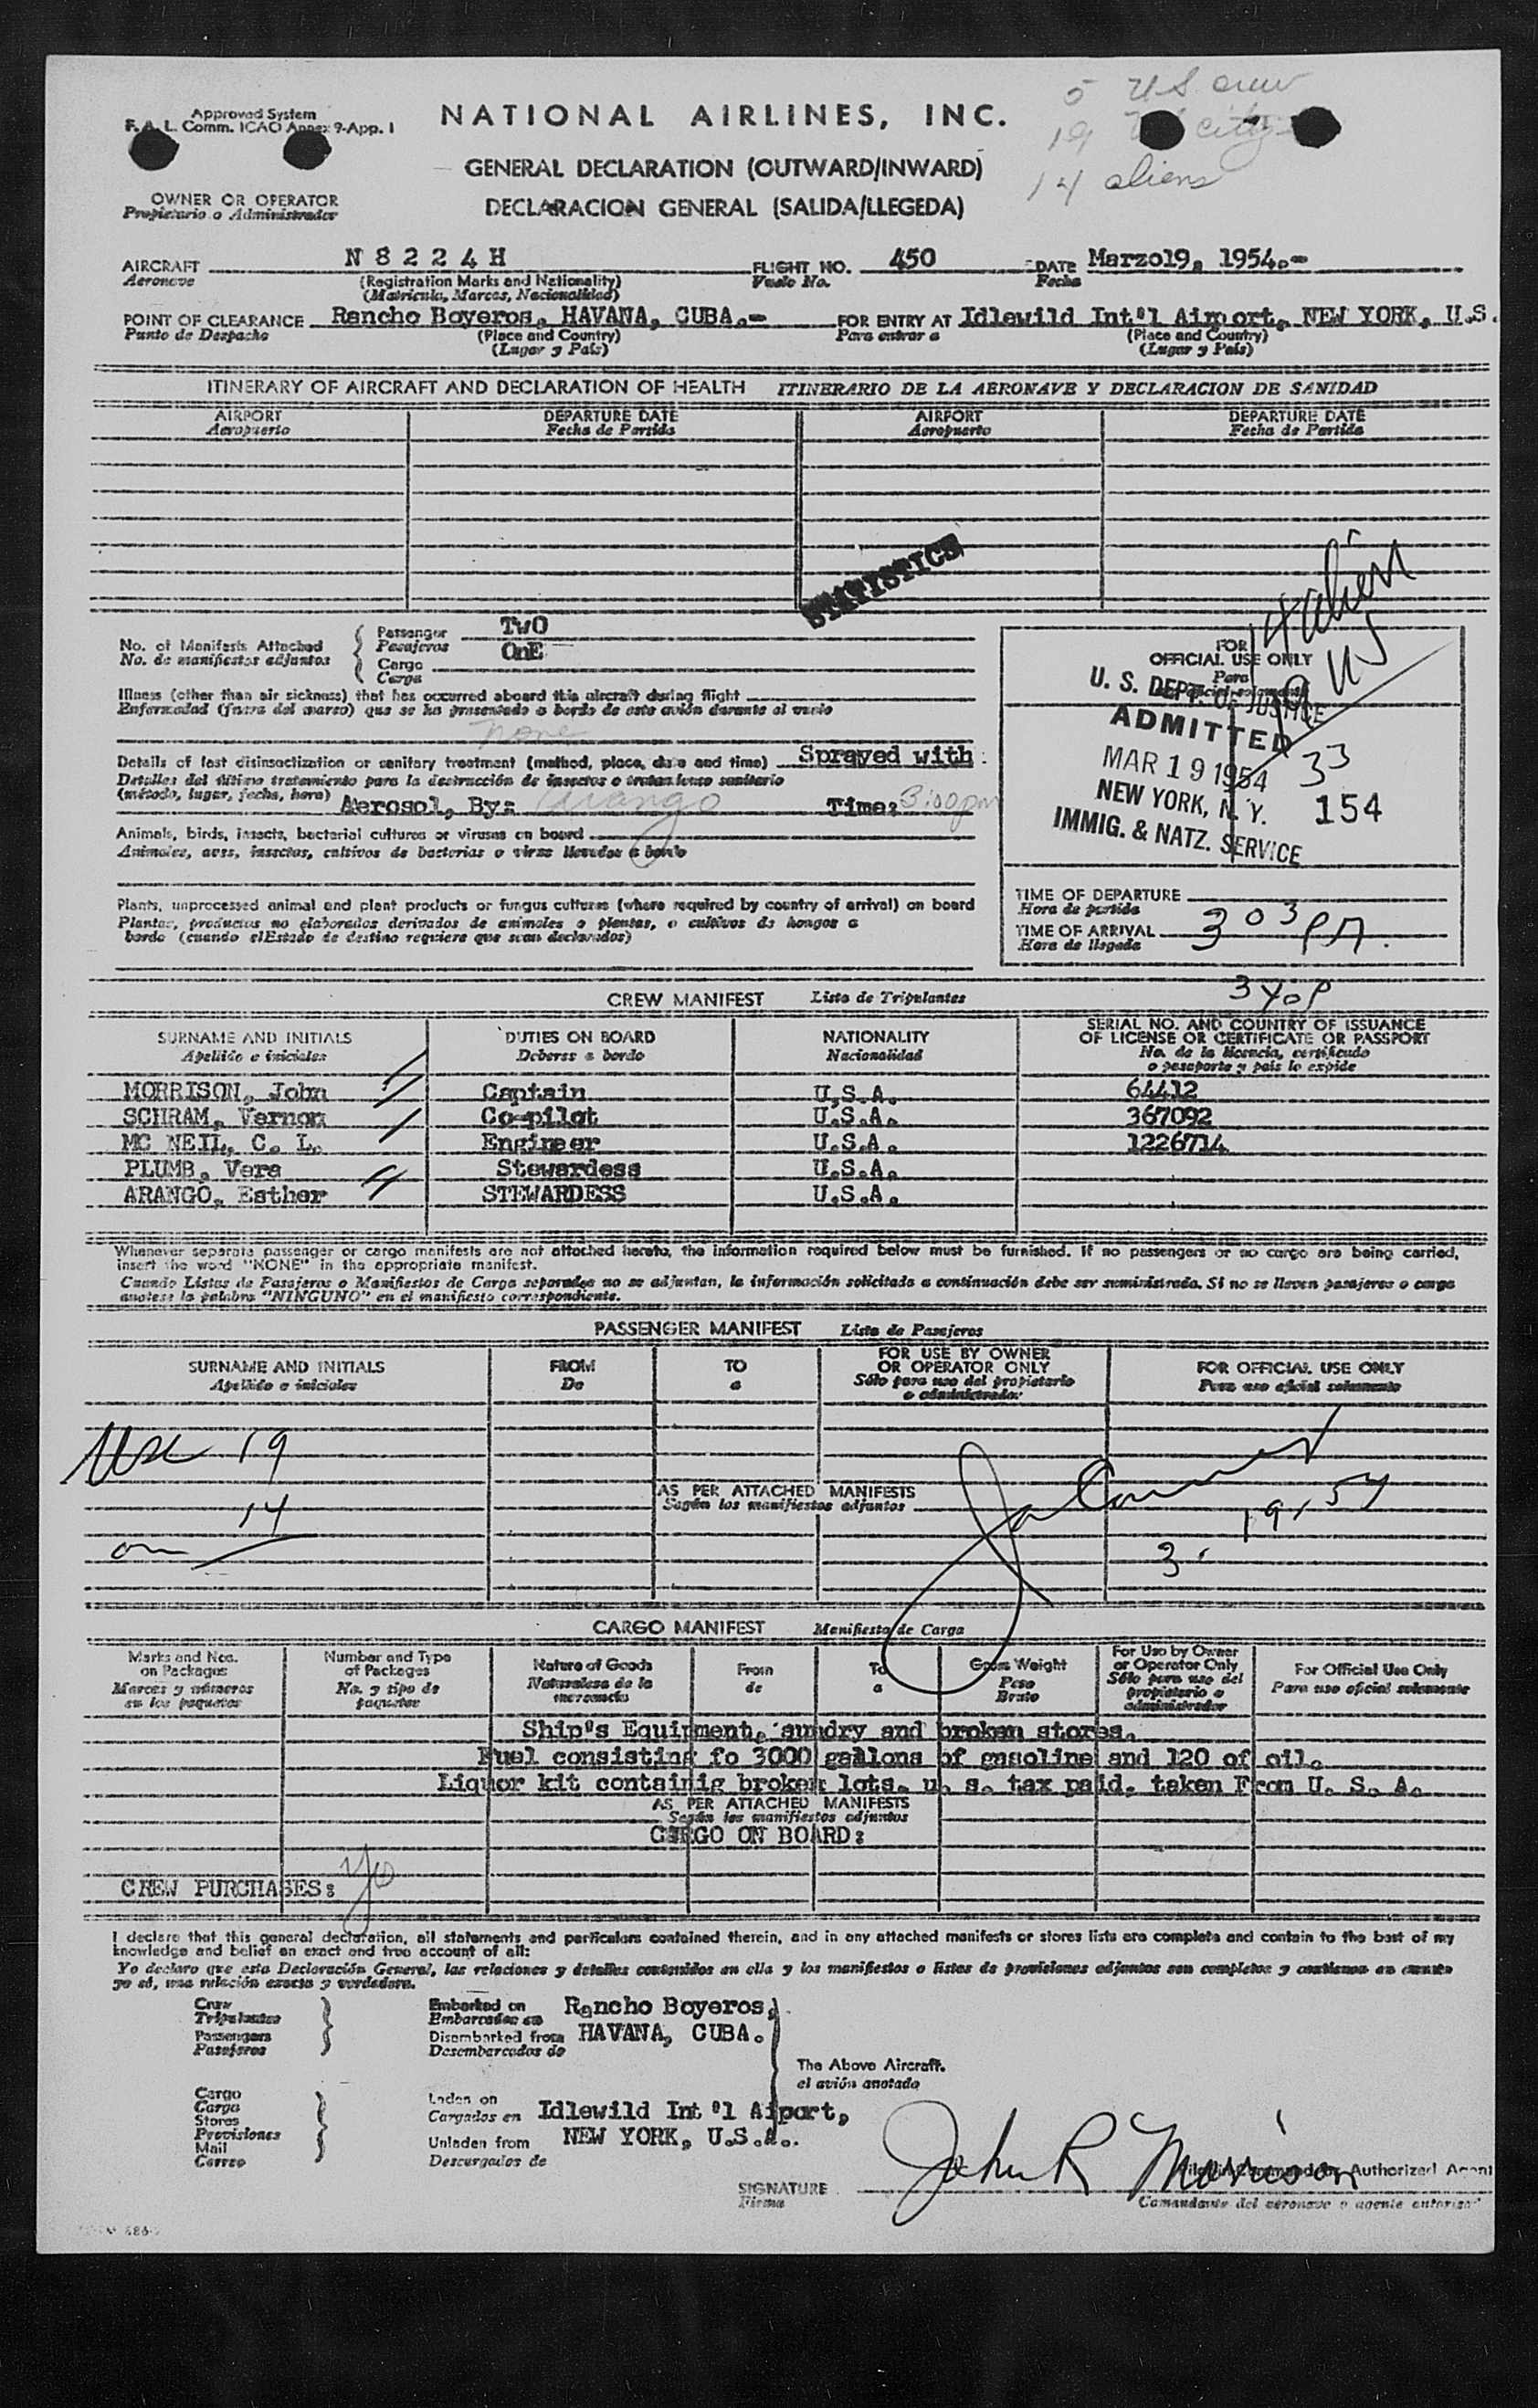 Approved System
F. A. L. Comm. ICAO Annex 9-App. 1
NATIONAL AIRLINES, INC.
5 US crew
19 citiz
14 aliens
GENERAL DECLARATION (OUTWARD/INWARD)
OWNER OR OPERATOR
Propietario o Administrador
DECLARACION GENERAL (SALIDA/LLEGEDA)
AIRCRAFT N 8 2 2 4 H FLIGHT NO. 450 DATE Marzo19, 1954.-
Aeronave (Registration Marks and Nationality) Vuelo No. Fecha
(Matricula, Marcas, Nacionalidad)
POINT OF CLEARANCE Rancho Boyeros, HAVANA, CUBA.- FOR ENTRY AT Idlewild Int'l Airport, NEW YORK, U.S.
Punto de Despacho (Place and Country) Para entrar a (Place and Country)
(Lugar y País) (Lugar y País)
ITINERARY OF AIRCRAFT AND DECLARATION OF HEALTH ITINERARIO DE LA AERONAVE Y DECLARACION DE SANIDAD
AIRPORT DEPARTURE DATE AIRPORT DEPARTURE DATE
Aeropuerto Fecha de Partida Aeropuerto Fecha de Partida
STATISTICS
14 alien
19 US
33
No. of Manifests Attached Passenger TwO
No. de manifiestos adjuntos Pasajeros OnE
Cargo
Carga
Illness (other than air sickness) that has occurred aboard this aircraft during flight
Enfermedad (fuera del mareo) que se ha presentado a bordo de este avión durante el vuelo
none
Details of last disinsectization or sanitary treatment (method, place, date and time) Sprayed with
Detalles del último tratamiento para la destrucción de insectos o tratamiento sanitario
(método, lugar, fecha, hora) Aerosol, By: Arango Time: 3:00 pm
Animals, birds, insects, bacterial cultures or viruses on board
Animales, aves, insectos, cultivos de bacterias o virus llevados a bordo
Plants, unprocessed animal and plant products or fungus cultures (where required by country of arrival) on board
Plantas, productos no elaborados derivados de animales o plantas, o cultivos de hongos a
bordo (cuando elEstado de destino requiere que sean declarados)
FOR
OFFICIAL USE ONLY
Para
U. S. DEPT. OF JUSTICE
ADMITTED
MAR 19 1954
NEW YORK, N. Y. 154
IMMIG. & NATZ. SERVICE
TIME OF DEPARTURE
Hora de partida
TIME OF ARRIVAL 3 03 PM.
Hora de llegada
340P
CREW MANIFEST Lista de Tripulantes
SURNAME AND INITIALS DUTIES ON BOARD NATIONALITY SERIAL NO. AND COUNTRY OF ISSUANCE
Apellido e iniciales Deberes a bordo Nacionalidad OF LICENSE OR CERTIFICATE OR PASSPORT
No. de la licencia, certificado
o pasaporte y país lo expide
MORRISON, John Captain U.S.A. 64412
SCHRAM, Vernon Co-pilot U.S.A. 367092
MC NEIL, C. L. Engineer U.S.A. 1226714
PLUMB, Vera Stewardess U.S.A.
ARANGO, Esther STEWARDESS U.S.A.
Whenever separate passenger or cargo manifests are not attached hereto, the information required below must be furnished. If no passengers or no cargo are being carried,
insert the word "NONE" in the appropriate manifest.
Cuando Listas de Pasajeros o Manifiestos de Carga separados no se adjuntan, la información solicitada a continuación debe ser suministrada. Si no se lleven pasajeros o carga
anotese la palabra "NINGUNO" en el manifiesto correspondiente.
PASSENGER MANIFEST Lista de Pasajeros
SURNAME AND INITIALS FROM TO FOR USE BY OWNER FOR OFFICIAL USE ONLY
Apellido e iniciales De a OR OPERATOR ONLY Para uso oficial solamente
Sólo para uso del propietario
o administrador
Usc 19
14
AS PER ATTACHED MANIFESTS
Según los manifiestos adjuntos
3. 19. 54
CARGO MANIFEST Manifiesto de Carga
Marks and Nos. Number and Type Nature of Goods From To Gross Weight For Use by Owner For Official Use Only
on Packages of Packages Naturaleza de la de a Peso or Operator Only Para uso oficial solamente
Marcas y números No. y tipo de mercancía Bruto Sólo para uso del
en los paquetes paquetes propietario o
administrador
Ship's Equipment, sundry and broken stores.
Fuel consisting fo 3000 gallons of gasoline and 120 of oil.
Liquor kit containig broken lots. u. s. tax paid. taken From U. S. A.
AS PER ATTACHED MANIFESTS
Según los manifiestos adjuntos
CARGO ON BOARD:
CREW PURCHASES: yes
I declare that this general declaration, all statements and particulars contained therein, and in any attached manifests or stores lists are complete and contain to the best of my
knowledge and belief an exact and true account of all:
Yo declaro que esta Declaración General, las relaciones y detalles contenidos en ella y los manifiestos o listas de provisiones adjuntos son completos y contienen en cuanto
yo sé, una relación exacta y verdadera.
Crew Embarked on Rancho Boyeros,
Tripulantes Embarcados en
Passengers Disembarked from HAVANA, CUBA.
Pasajeros Desembarcados de
The Above Aircraft.
el avión anotado
Cargo
Carga Laden on
Stores Cargados en Idlewild Int'l Aiport,
Provisiones
Mail Unladen from NEW YORK, U.S.A..
Correo Descargados de
SIGNATURE John R Morrison Authorized Agent
Firma Comandante del aeronave o agente autorizad